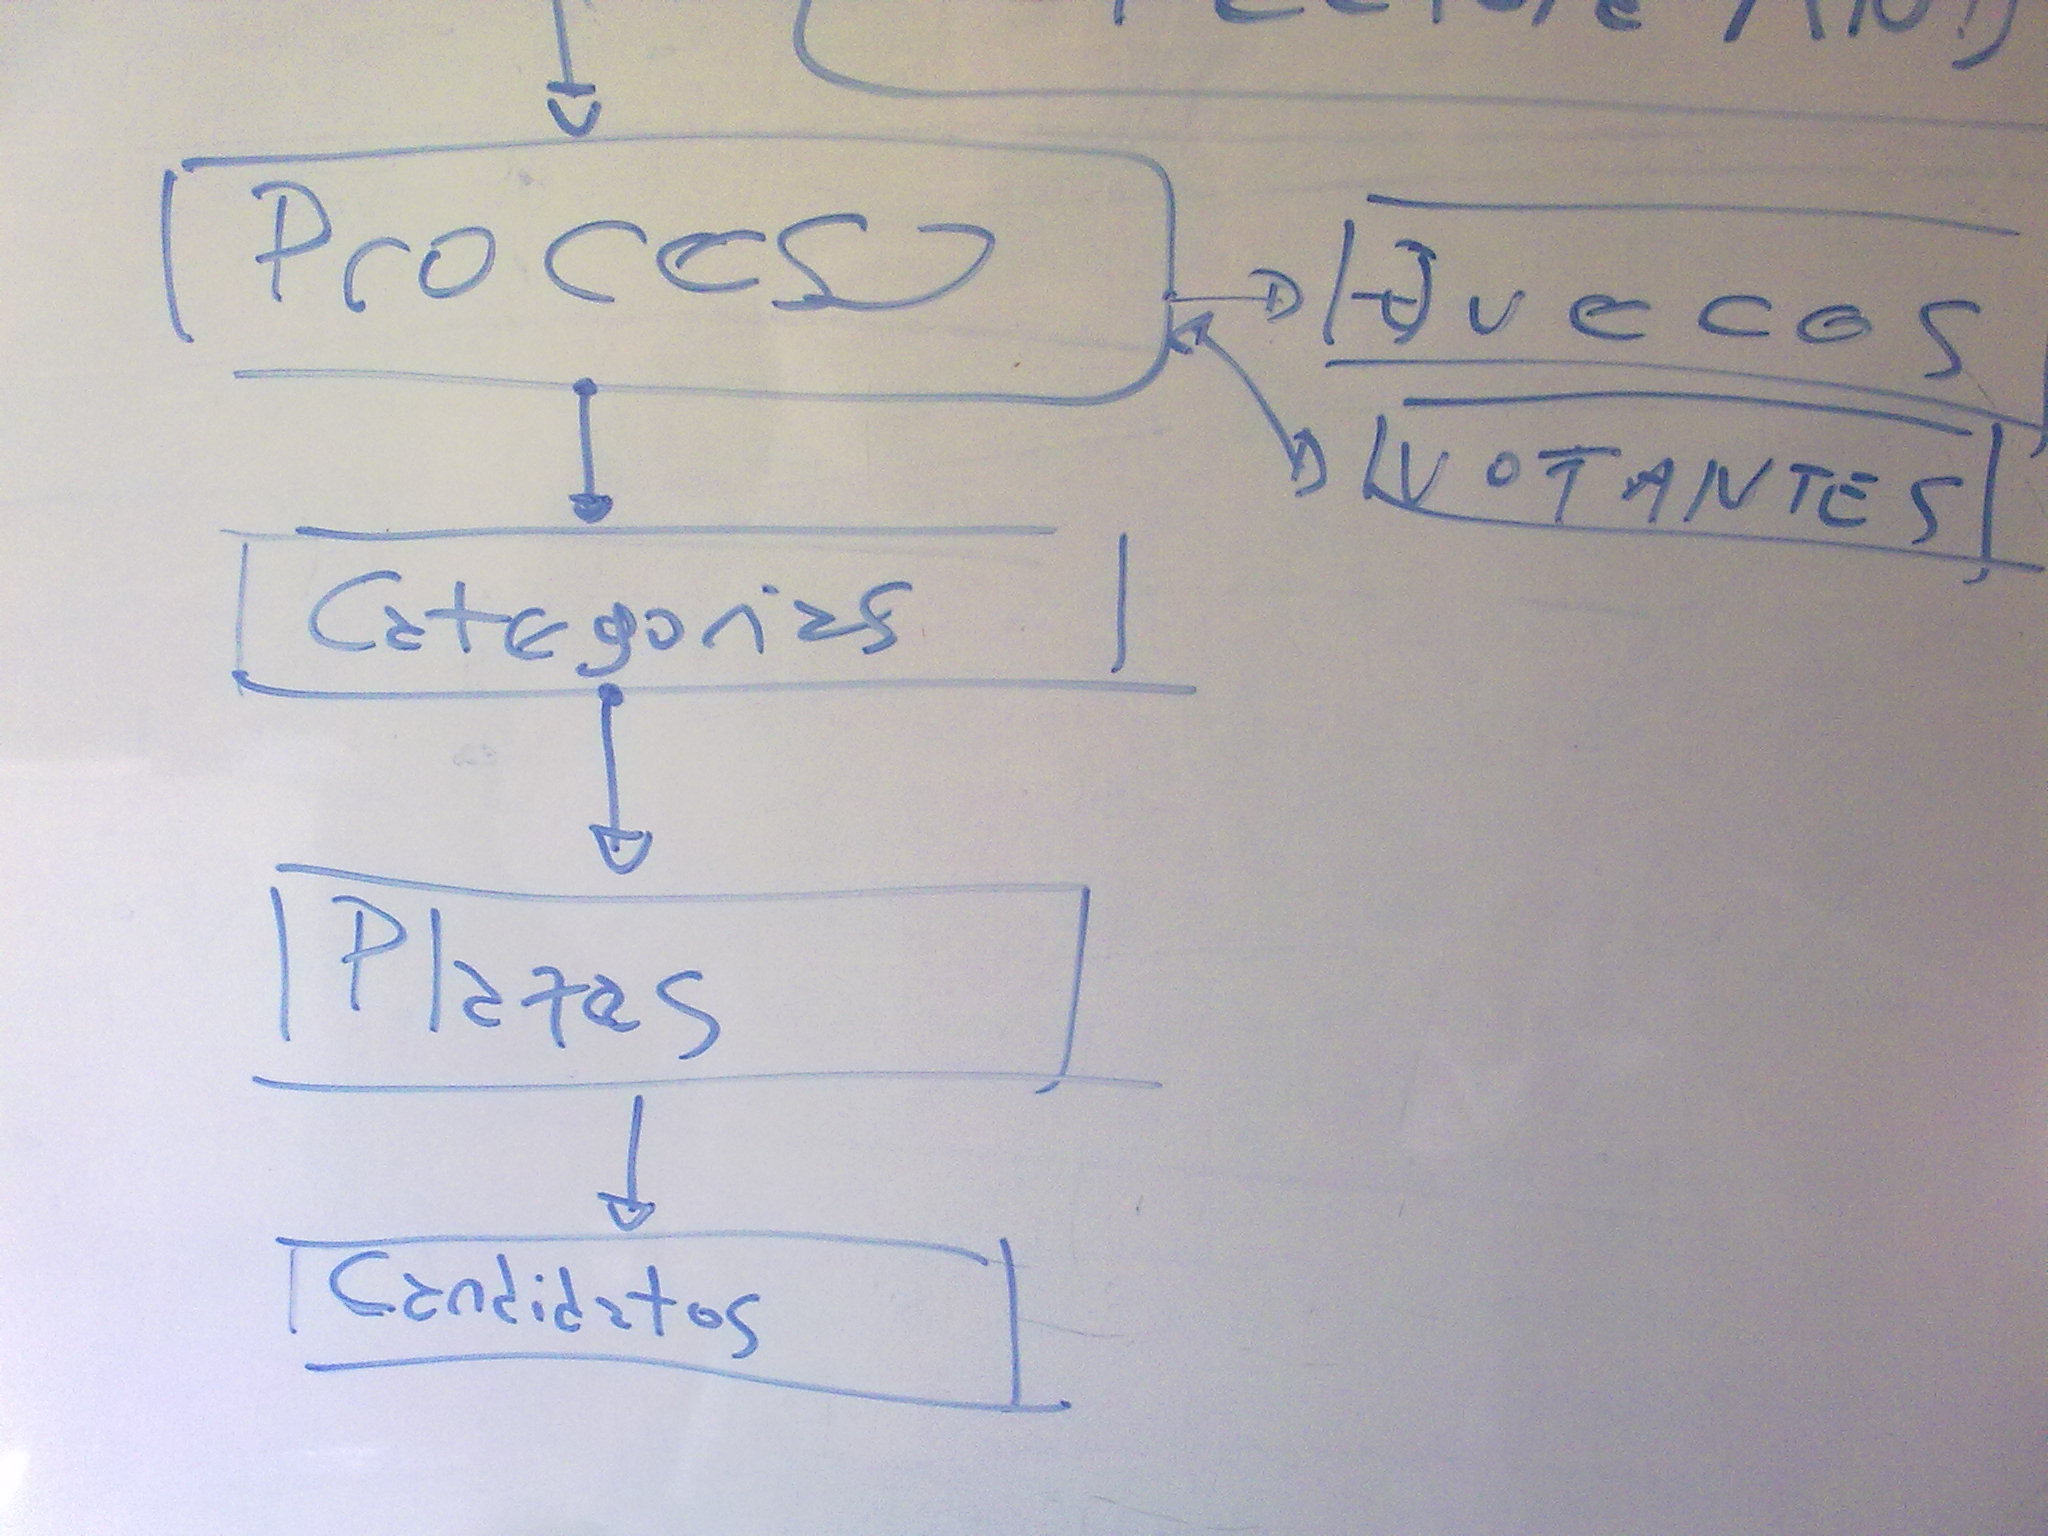 Proceso
Huecos
VOTANTES
Categorias
Plazas
Candidatos